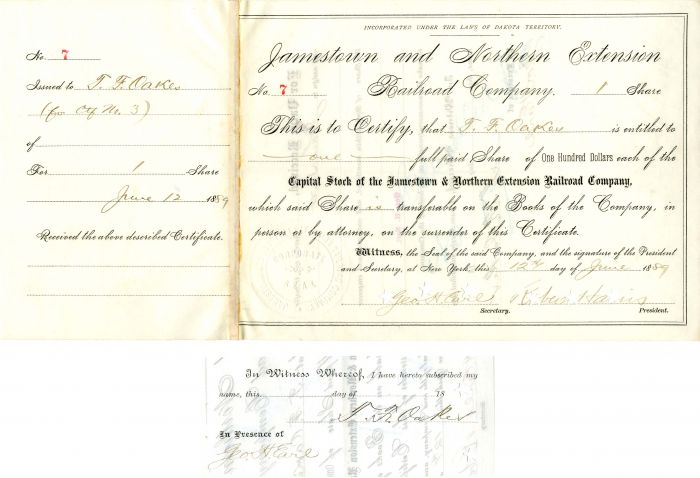 No. 7
Issued to T. F. Oakes
(for Ctf No. 3)
of
For 1 Share
June 12 1889
Received the above described Certificate.
INCORPORATED UNDER THE LAWS OF DAKOTA TERRITORY.
Jamestown and Northern Extension
No. 7 Railroad Company. 1 Share
This is to Certify, that T. F. Oakes is entitled to
one full paid Share of One Hundred Dollars each of the
Capital Stock of the Jamestown & Northern Extension Railroad Company,
which said Share is transferable on the Books of the Company, in
person or by attorney, on the surrender of this Certificate.
Witness, the Seal of the said Company, and the signature of the President
and Secretary, at New York, this 12th day of June 1889
CORPORATE
SEAL
Geo. H. Earl Robert Harris
Secretary. President.
In Witness Whereof, I have hereto subscribed my
name, this day of 18
T. F. Oakes
In Presence of
Geo. H. Earl